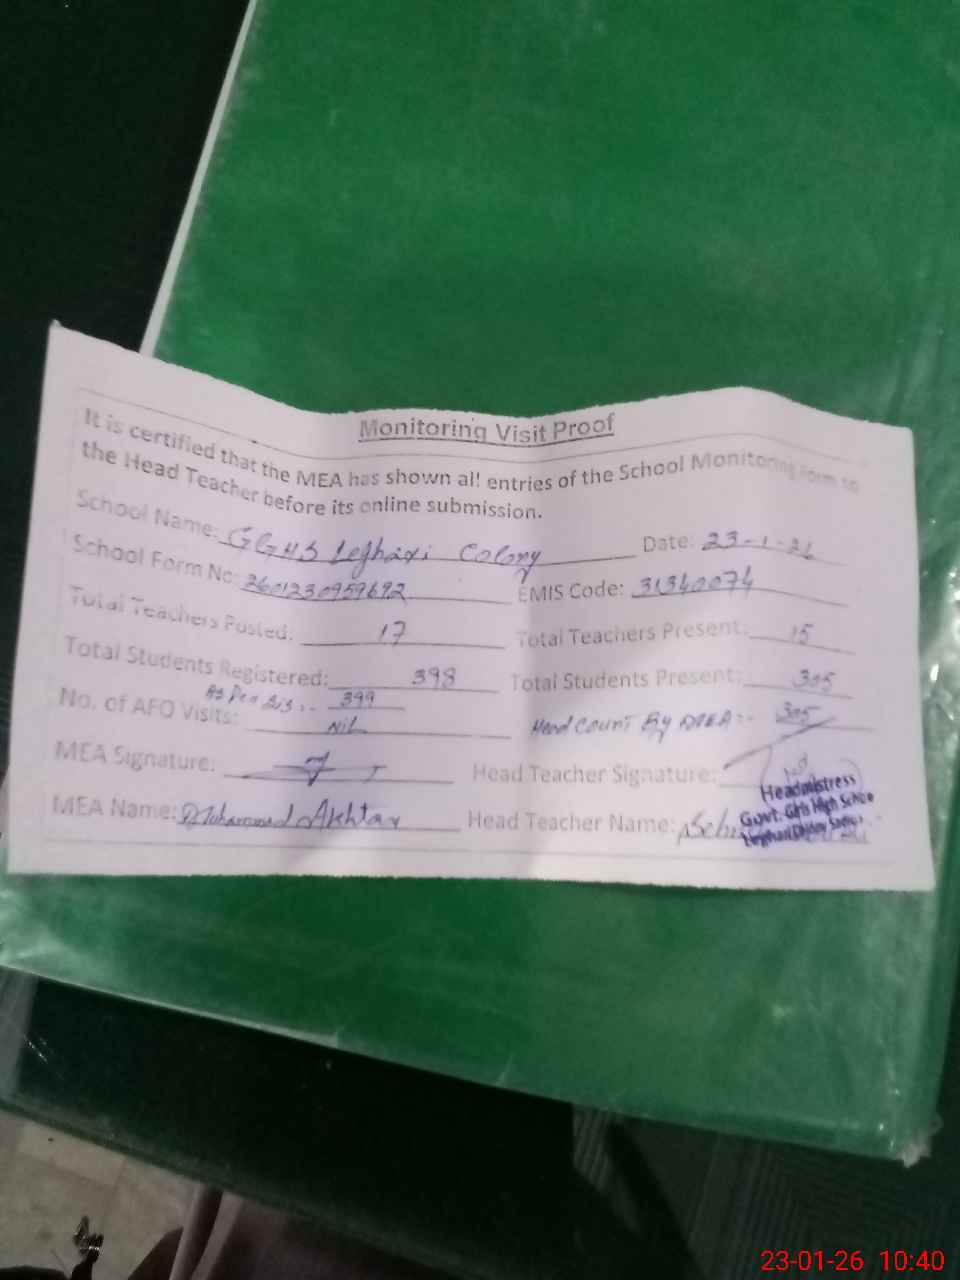 Monitoring Visit Proof
It is certified that the MEA has shown all entries of the School Monitoring Form to
the Head Teacher before its online submission.
School Name: GGHS Leghari Colony Date: 23-1-26
School Form No: 2601230959692 EMIS Code: 31340074
Total Teachers Posted: 17 Total Teachers Present: 15
Total Students Registered: 398 Total Students Present: 305
As Per SIS:- 399
No. of AEO Visits: Nil Head Count By MEA:- 305
MEA Signature: Head Teacher Signature:
Headmistress
MEA Name: Muhammad Akhtar Head Teacher Name:
Govt. Girls High School
Leghari Colony
23-01-26 10:40